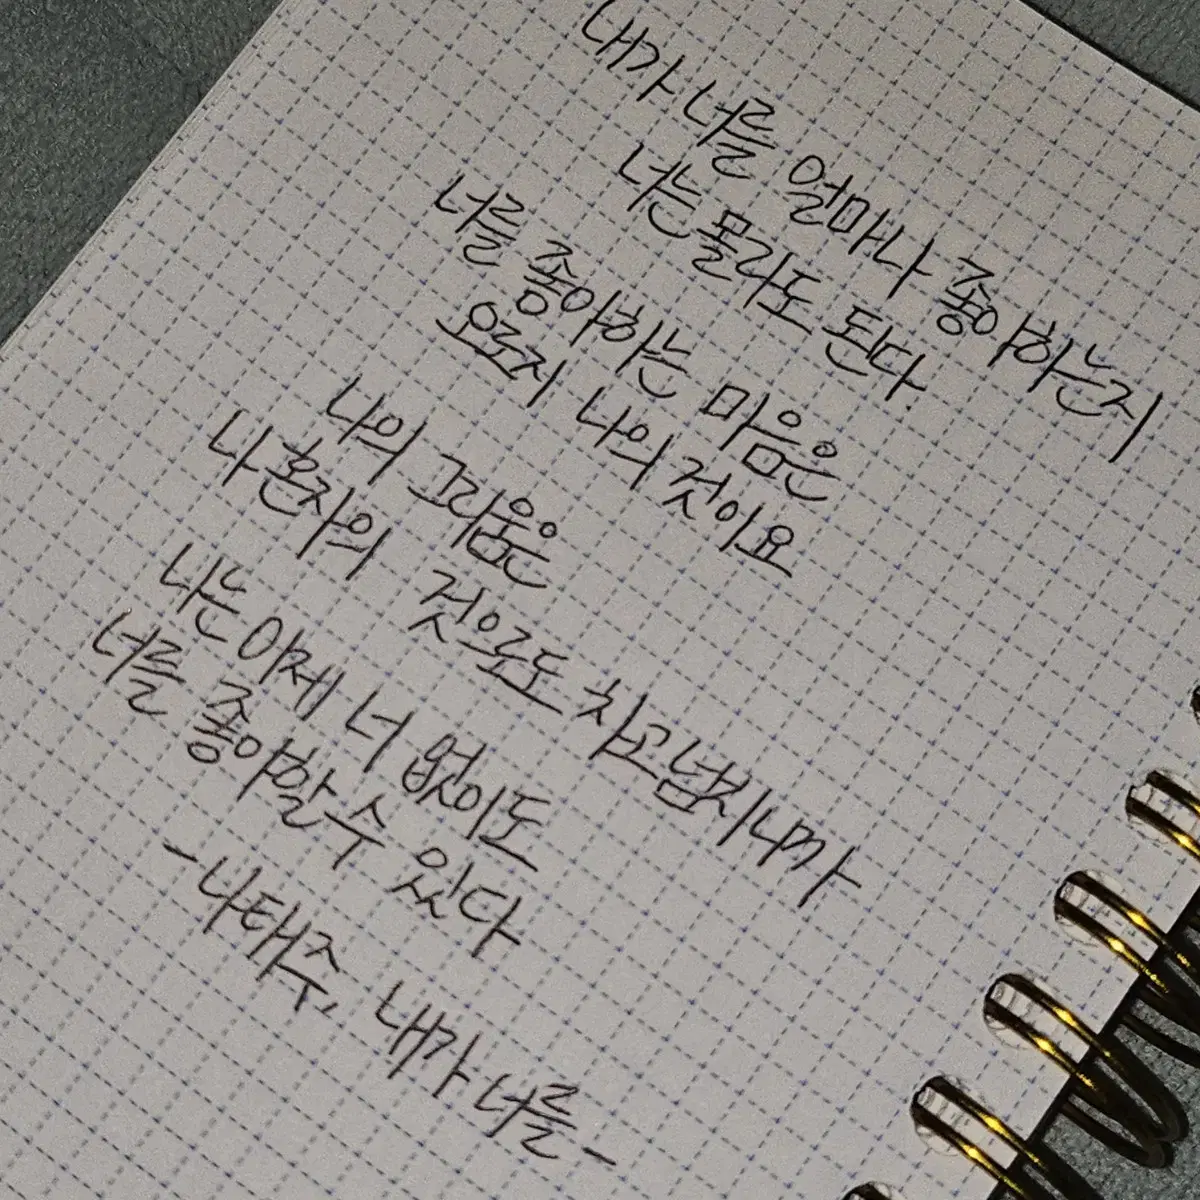 내가 너를 얼마나 좋아하는지
너는 몰라도 된다.
너를 좋아하는 마음은
오로지 나의 것이요
나의 그리움은
나 혼자의 것으로도 차고 넘치니까
나는 이제 너 없이도
너를 좋아할 수 있다
-나태주, 내가 너를-